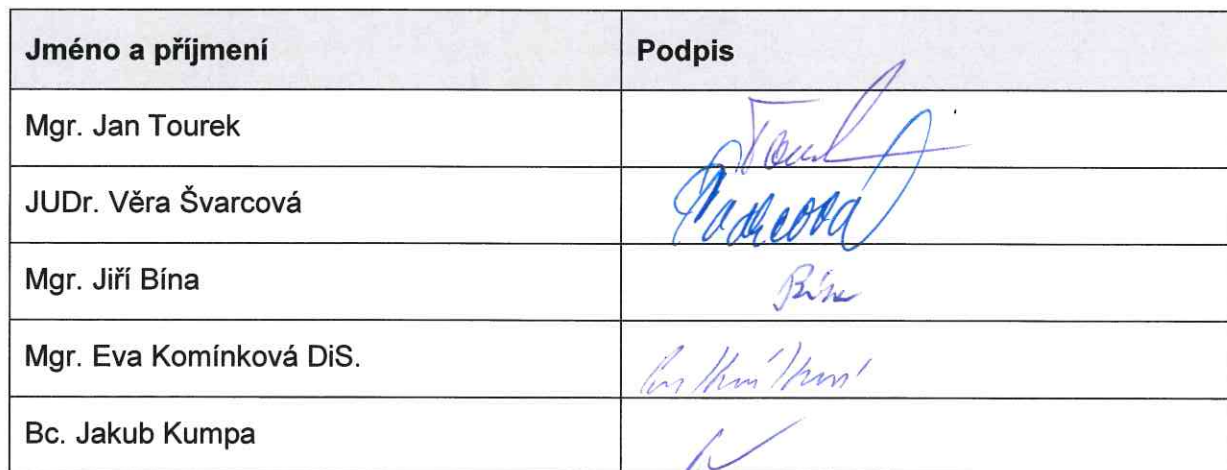 Jméno a příjmení Podpis
Mgr. Jan Tourek
JUDr. Věra Švarcová Švarcová
Mgr. Jiří Bína Bína
Mgr. Eva Komínková DiS.
Bc. Jakub Kumpa